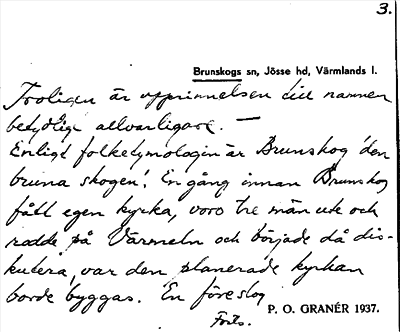 3.
Brunskogs sn, Jösse hd, Värmlands l.
Troligen är upprinnelsen till namnen
betydligt allvarligare. —
Enligt folketymologin är Brunskog 'den
bruna skogen'. En gång innan Brunskog
fått egen kyrka, voro tre män ute och
rodde på Värmeln och började då dis-
kutera, var den planerade kyrkan
borde byggas. En föreslog
Forts.
P. O. GRANÉR 1937.